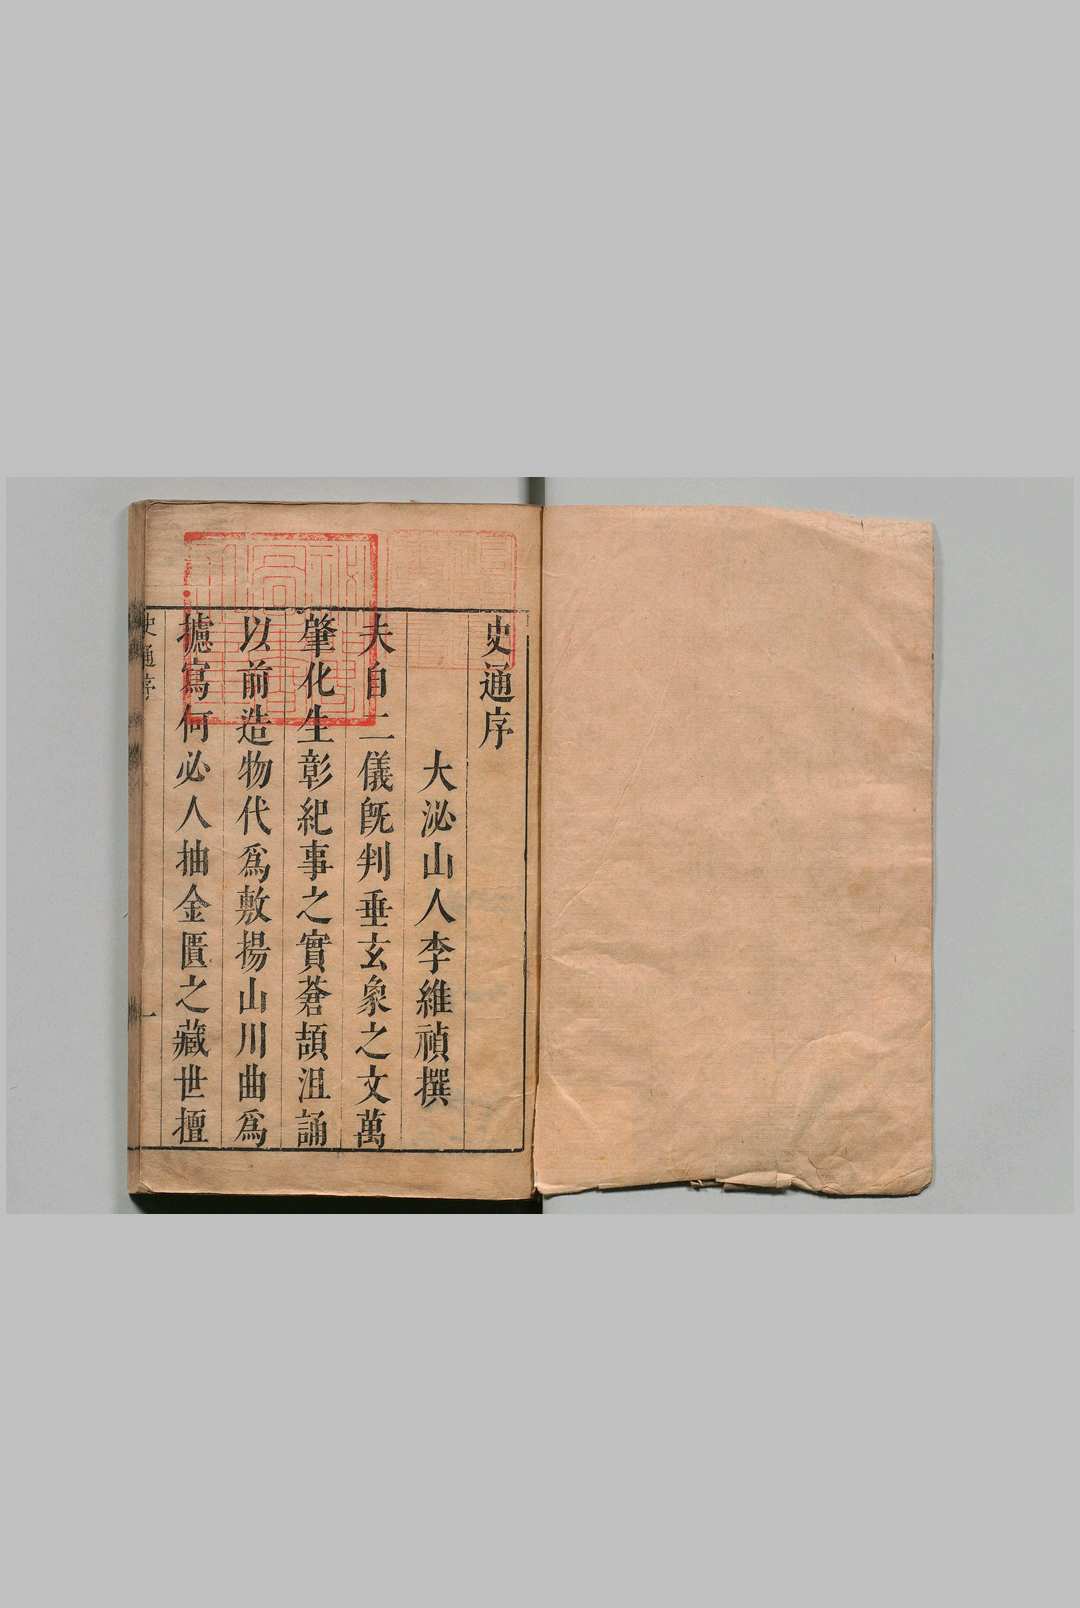 史通序
大泌山人李維禎撰
夫自二儀旣判垂玄象之文萬
肇化生彰紀事之實蒼頡沮誦
以前造物代爲敷揚山川曲爲
攄寫何必人抽金匱之藏世擅
史通序
一